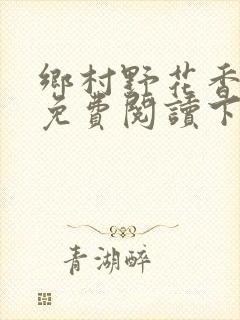 鄉村野花香
免費閱讀下
青湖醉